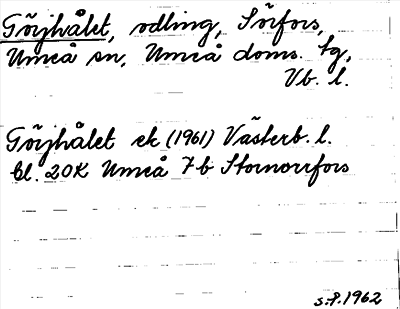 Töijhålet, odling, Sörfors,
Umeå sn, Umeå doms. tg,
Vb. l.
Töijhålet ek (1961) Västerb. l.
bl. 20K Umeå 7b Stornorrfors
S.P. 1962